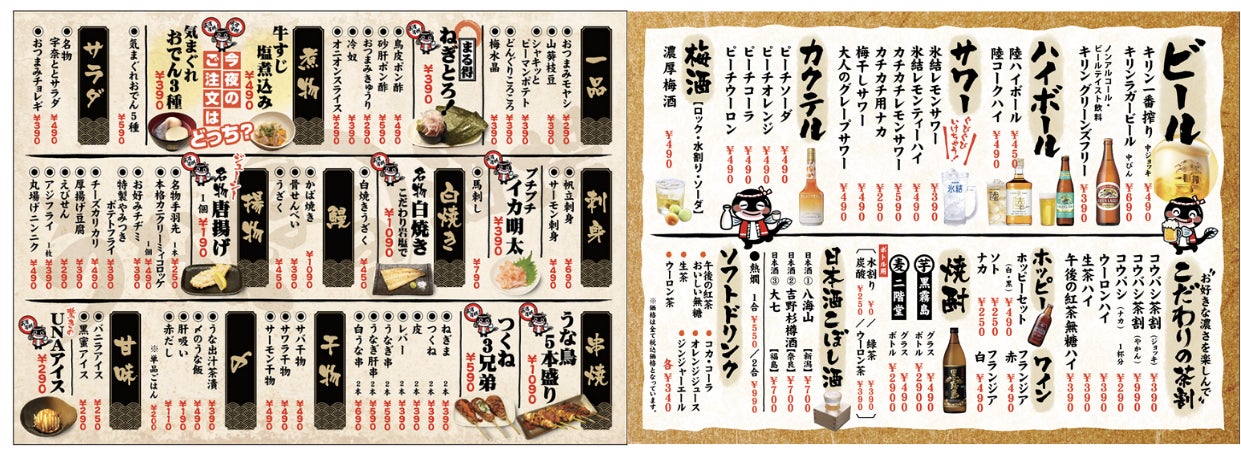 一品
おつまみモヤシ ¥290
山葵枝豆
シャキッと
ピーマンポテト
どんぐりころころ ¥390
梅水晶 ¥490
まる得
ねぎとろ
¥390
鳥皮ポン酢 ¥490
砂肝ポン酢
おつまみきゅうり
冷奴
オニオンスライス ¥290
煮物
牛すじ
塩煮込み
¥490
今夜の
ご注文は
どっち?
気まぐれ
おでん3種
¥390
気まぐれおでん5種 ¥590
サラダ
名物
宇奈ととサラダ ¥490
おつまみチョレギ ¥390
刺身
帆立刺身 ¥690
サーモン刺身 ¥490
プチプチ
イカ明太
¥390
馬刺し ¥790
白焼き
名物 白焼き
こだわり岩塩で
白焼きうざく
鰻
かば焼き ¥1090
骨せんべい ¥390
うざく
揚物
ジューシー!
名物 唐揚げ
1個 ¥190
名物手羽先 1本 ¥250
本格カニクリーミィコロッケ
1個 ¥490
お好みチヂミ ¥390
特製やみつき
ポテトフライ ¥390
チーズカリカリ ¥490
厚揚げ豆腐 ¥390
えびせん ¥290
アジフライ 1枚 ¥390
丸揚げニンニク ¥490
串焼
うな鳥
5本盛り
¥1090
つくね
3兄弟
¥590
ねぎま 2本 ¥390
つくね 2本 ¥390
皮 2本 ¥390
レバー 2本 ¥390
うなぎ串 2本
うなぎ肝串 2本
白うなぎ串 2本 ¥690
干物
サバ干物 ¥490
サワラ干物 ¥490
サーモン干物 ¥490
〆
うな出汁茶漬 ¥390
〆のうな飯 ¥490
肝吸い ¥190
赤だし ¥110
※単品ごはん ¥200
甘味
バニラアイス ¥250
黒蜜アイス ¥290
驚きの
UNAアイス
¥290
ビール
キリン一番搾り 中ジョッキ ¥490
キリンラガービール 中びん ¥690
ノンアルコール・
ビールテイスト飲料
キリン グリーンズフリー ¥390
ハイボール
陸ハイボール ¥450
陸コークハイ ¥490
サワー
ぐびぐび
いけちゃう!
氷結レモンサワー ¥390
氷結レモンティーハイ ¥490
カチカチレモンサワー ¥590
カチカチ用ナカ ¥290
梅干しサワー ¥490
大人のグレープサワー ¥490
カクテル
ピーチソーダ ¥490
ピーチオレンジ ¥490
ピーチコーラ ¥490
ピーチウーロン ¥490
梅酒 【ロック・水割り・ソーダ】
濃厚梅酒 ¥490
お好きな濃さを楽しんで
こだわりの茶割
コウバシ茶割 (ジョッキ) ¥390
コウバシ茶割 (やかん) ¥990
コウバシ (ナカ) 1杯分 ¥290
ウーロンハイ ¥390
生茶ハイ ¥390
午後の紅茶無糖ハイ ¥390
ホッピー
ホッピーセット
(白・黒) ¥490
ソト ¥250
ナカ ¥250
ワイン
フランジア
赤 ¥490
フランジア
白 ¥490
焼酎
芋 黒霧島
グラス ¥490
ボトル ¥2900
麦 二階堂
グラス ¥490
ボトル ¥2900
ボトル用
水割り ¥0/緑茶 ¥390
炭酸 ¥250/ウーロン茶 ¥390
日本酒こぼし酒
日本酒① 八海山 【新潟】 ¥700
日本酒② 吉野杉樽酒 【奈良】 ¥700
日本酒③ 大七 【福島】 ¥700
熱燗 1合 ¥550/2合 ¥990
ソフトドリンク
午後の紅茶
おいしい無糖
生茶
ウーロン茶
コカ・コーラ
オレンジジュース
ジンジャーエール
各 ¥340
※価格は全て税込価格となっています。